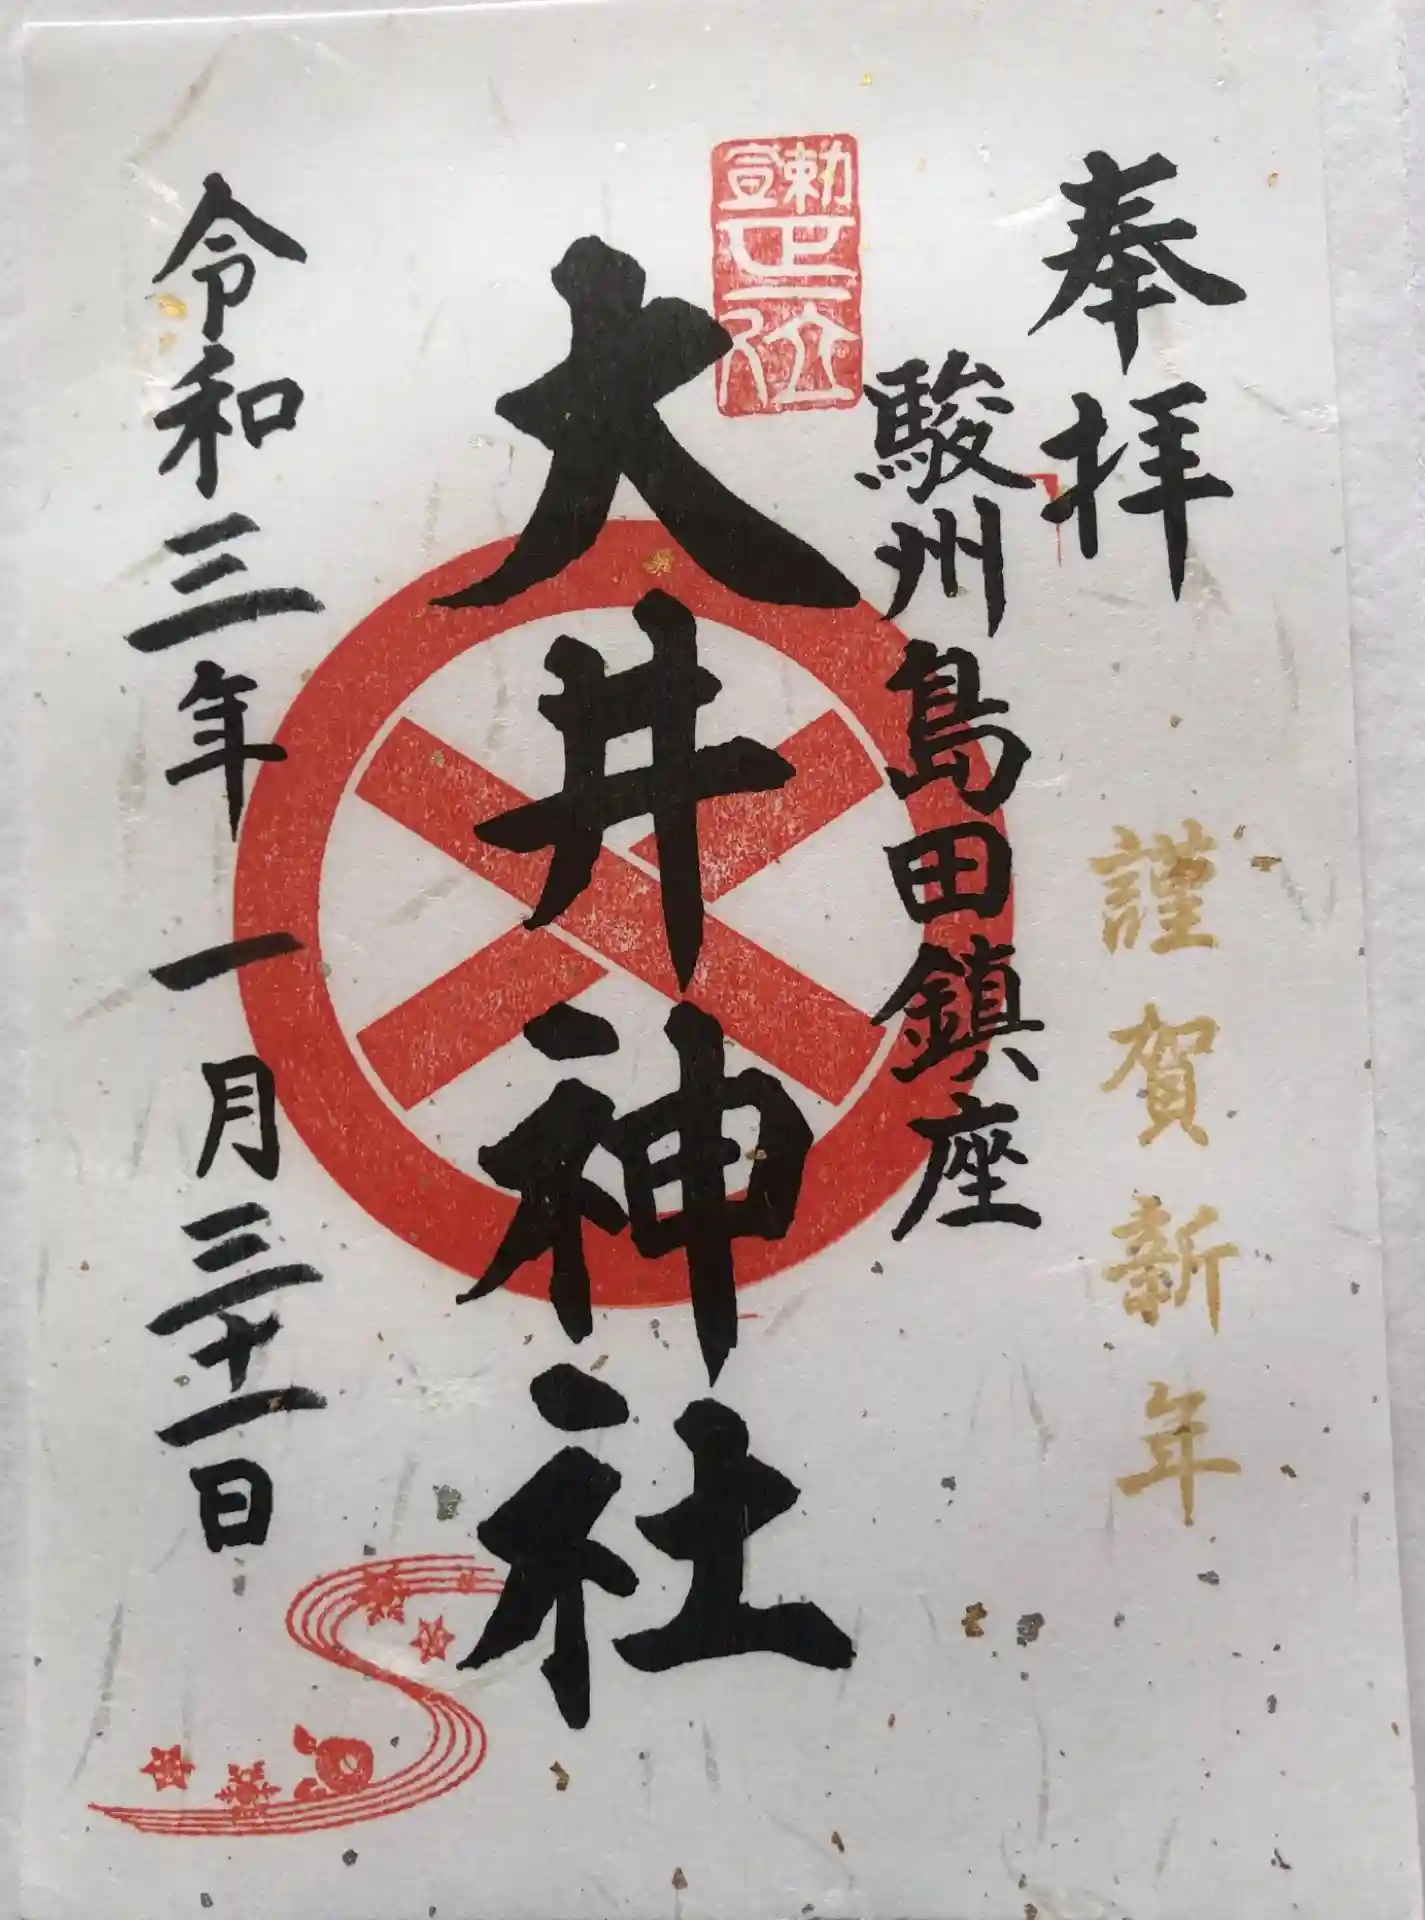 奉拝
謹賀新年
駿州島田鎮座
勅宣
正一位
大井神社
令和三年一月三十一日